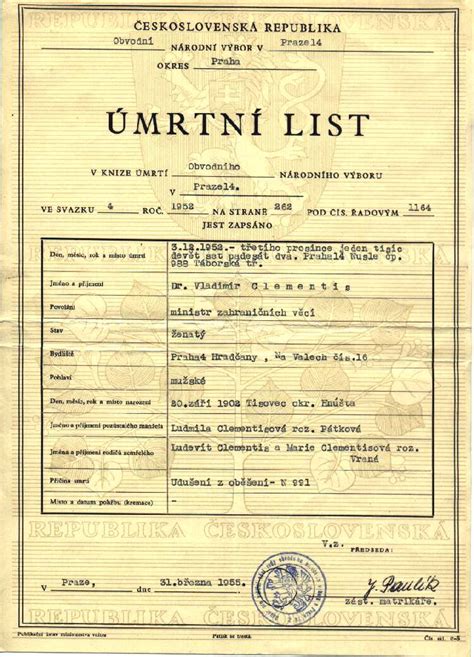 ČESKOSLOVENSKÁ REPUBLIKA
Obvodní NÁRODNÍ VÝBOR V Praze14
OKRES Praha
ÚMRTNÍ LIST
V KNIZE ÚMRTÍ Obvodního NÁRODNÍHO VÝBORU
V Praze14.
VE SVAZKU 4 ROČ. 1952 NA STRANĚ 262 POD ČÍS. ŘADOVÝM 1164
JEST ZAPSÁNO
Den, měsíc, rok a místo úmrtí 3.12.1952.- třetího prosince jeden tisíc
devět set padesát dva. Praha14 Nusle čp.
988 Táborská tř.
Jméno a příjmení Dr. Vladimír Clementis
Povolání ministr zahraničních věcí
Stav ženatý
Bydliště Praha4 Hradčany , Na Valech čís.16
Pohlaví mužské
Den, měsíc, rok a místo narození 20.září 1902 Tisovec okr. Hnúšťa
Jméno a příjmení pozůstalého manžela Ludmila Clementisová roz. Pátková
Jména a příjmení rodičů zemřelého Ludevít Clementis a Marie Clementisová roz.
Vraná
Příčina smrti Udušení z oběšení- N 991
Místo a datum pohřbu (kremace) -
REPUBLIKA ČESKOSLOVENSKÁ
V.z.
PŘEDSEDA:
V Praze, dne 31.března 1955.
J. Pavlík
zást. matrikáře.